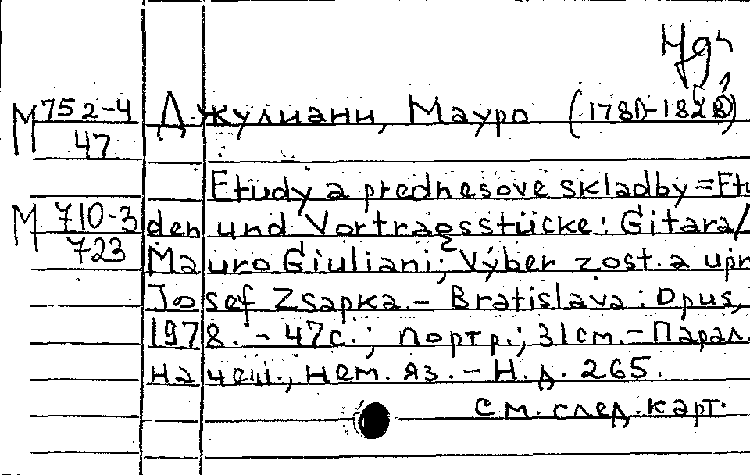 М 752-4
47
Джулиани, Мауро (1780-1828)
Etudy a prednesove skladby = Etu
М 710-3
723
den und Vortragsstücke: Gitara/
Mauro Giuliani; Výber zost. a upr
Josef Zsapka. - Bratislava: Opus,
1978. - 47с.; портр.; 31см. - Парал.
на чеш., нем. яз. - Н.д. 265.
см. след. карт.